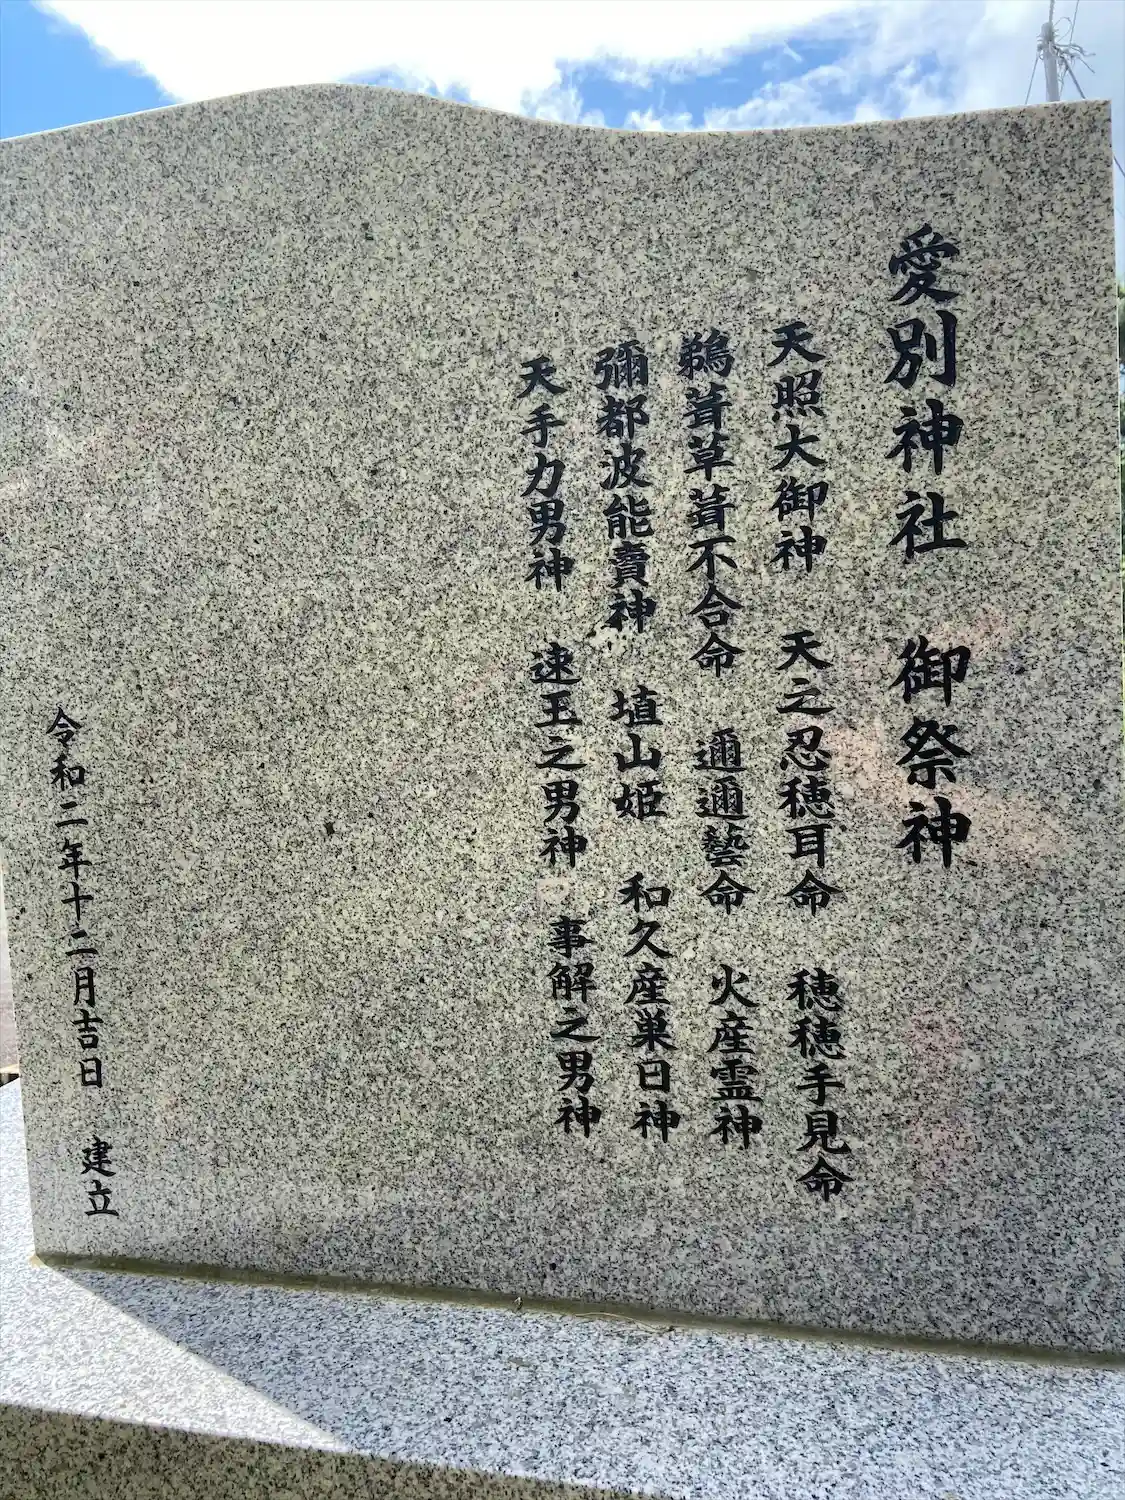 愛別神社　御祭神
天照大御神　天之忍穂耳命　穂穂手見命
鵜葺草葺不合命　邇邇藝命　火産霊神
彌都波能賣神　埴山姫　和久産巣日神
天手力男神　速玉之男神　事解之男神
令和二年十二月吉日　建立